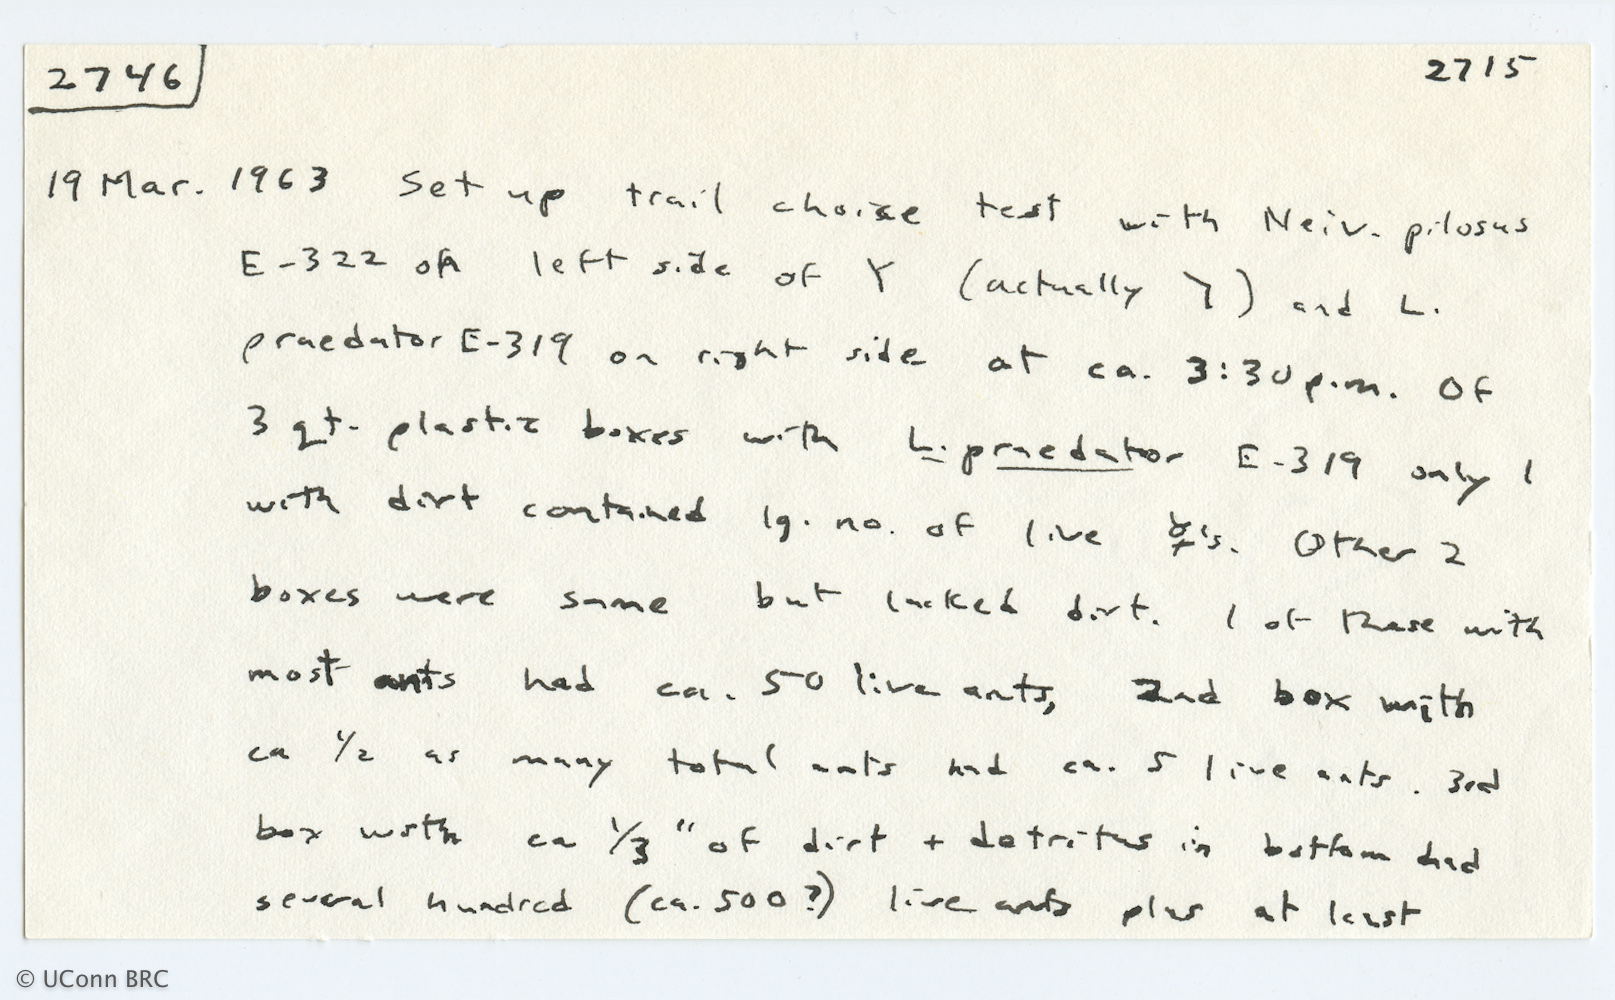 2746
2715
19 Mar. 1963 Set up trail choice test with Neiv. pilosus
E-322 on left side of Y (actually Y) and L.
praedator E-319 on right side at ca. 3:30 p.m. Of
3 qt. plastic boxes with L. praedator E-319 only 1
with dirt contained lg. no. of live ☿'s. Other 2
boxes were same but lacked dirt. 1 of these with
most ants had ca. 50 live ants, 2nd box with
ca 1/2 as many total ants had ca. 5 live ants. 3rd
box with ca 1/3" of dirt + detritus in bottom had
several hundred (ca. 500?) live ants plus at least
© UConn BRC